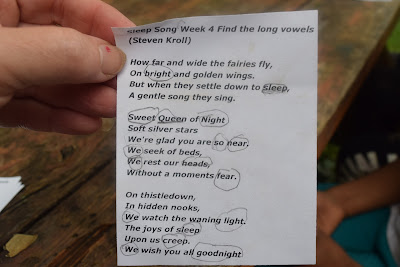 Sleep Song Week 4 Find the long vowels
(Steven Kroll)
How far and wide the fairies fly,
On bright and golden wings.
But when they settle down to sleep,
A gentle song they sing.
Sweet Queen of Night
Soft silver stars
We're glad you are so near.
We seek of beds,
We rest our heads,
Without a moments fear.
On thistledown,
In hidden nooks,
We watch the waning light.
The joys of sleep
Upon us creep.
We wish you all goodnight